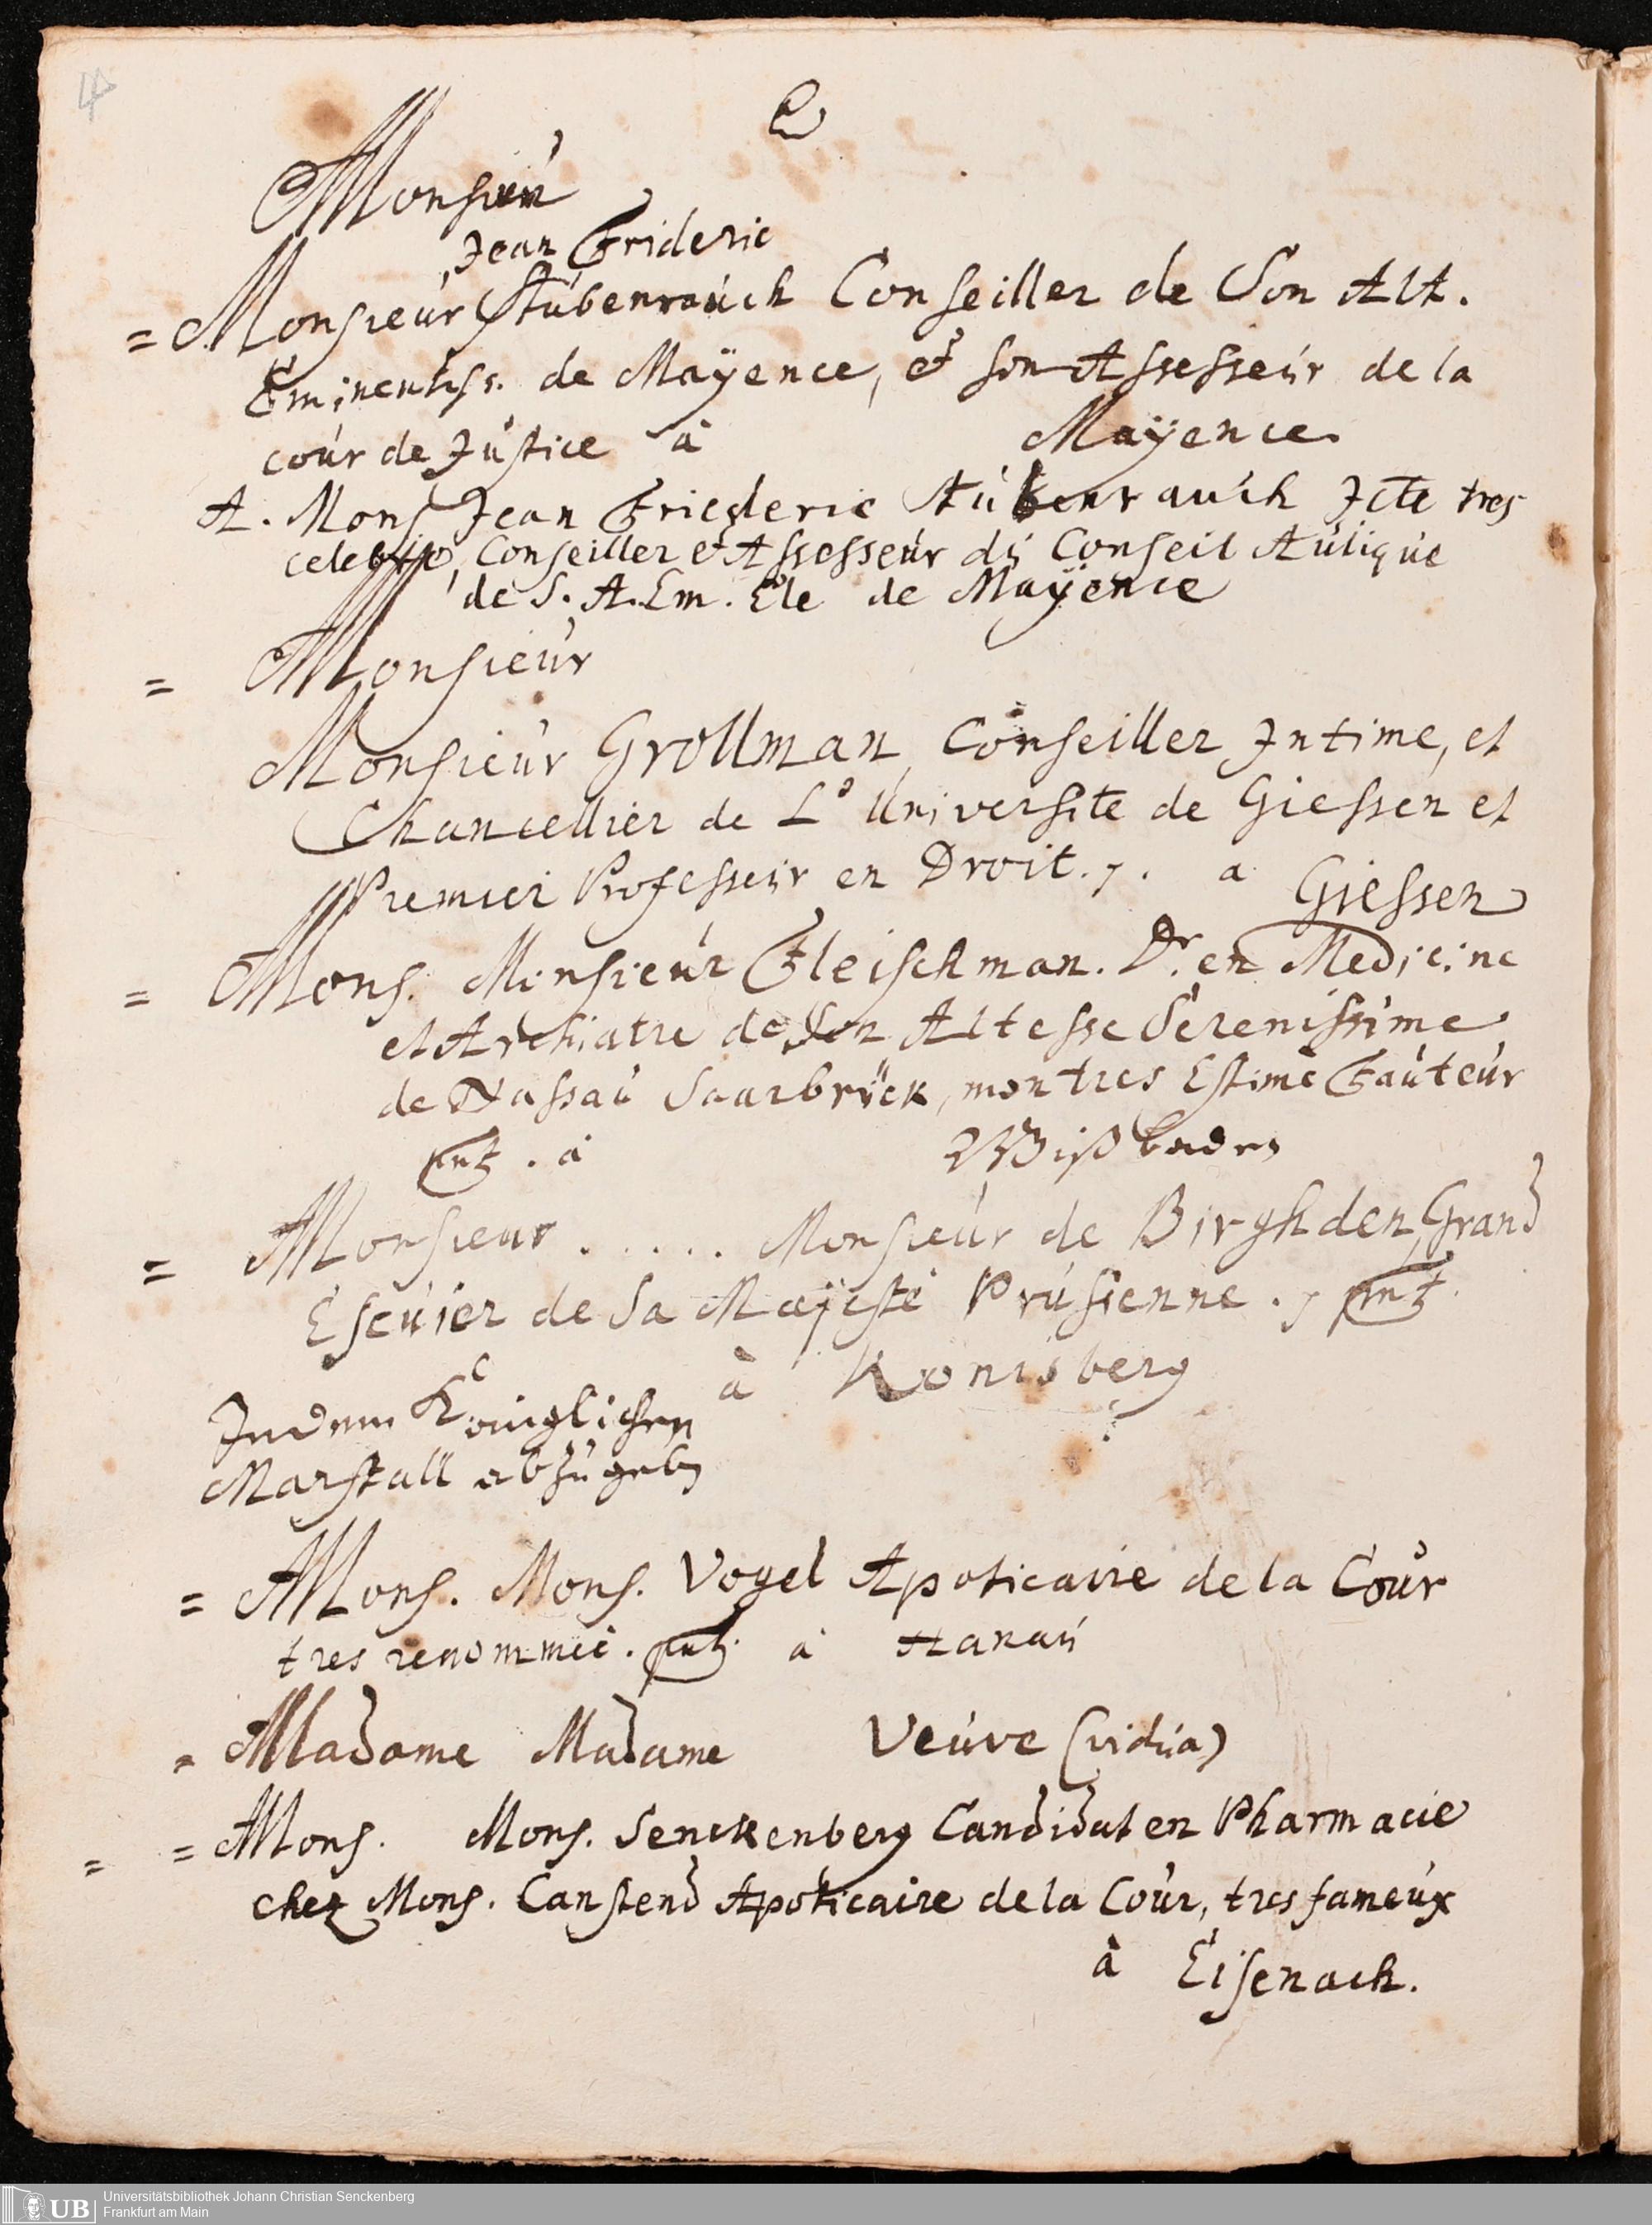 4
Monsieur
Jean Frideric
= Monsieur Stubenrauch Conseiller de Son Alt.
Eminentiss. de Maÿence, et son Assesseur de la
cour de Justice à Maÿence
A. Mons Jean Friederic Stubenrauch Jcte tres
celebre, Conseiller et Assesseur du Conseil Aulique
de S. A. Em. Ele de Maÿence
= Monsieur
Monsieur Grollman, Conseiller Intime, et
Chancellier de L'Universite de Giessen et
Premier Professeur en Droit. a Giessen
= Mons. Monsieur Fleischman. Dr. en Medicine
et Archiatre de Son Altesse Serenissime
de Nassau Saarbrück, mon tres Estimé Fauteur
pnt. à Wißbaden
= Monsieur ..... Monsieur de Birghden, Grand
Escuier de Sa Majesté Prusienne. pnt.
à Konisberg
In dem Königlichen
Marstall abzugeben
= Mons. Mons. Vogel Apoticaire de la Cour
tres renommée. pnt. à Hanau
= Madame Madame Veuve (vidua)
= = Mons. Mons. Senckenberg Candidat en Pharmacie
chez Mons. Canstend Apoticaire de la Cour, tres fameux
à Eisenach.
UB Universitätsbibliothek Johann Christian Senckenberg
Frankfurt am Main